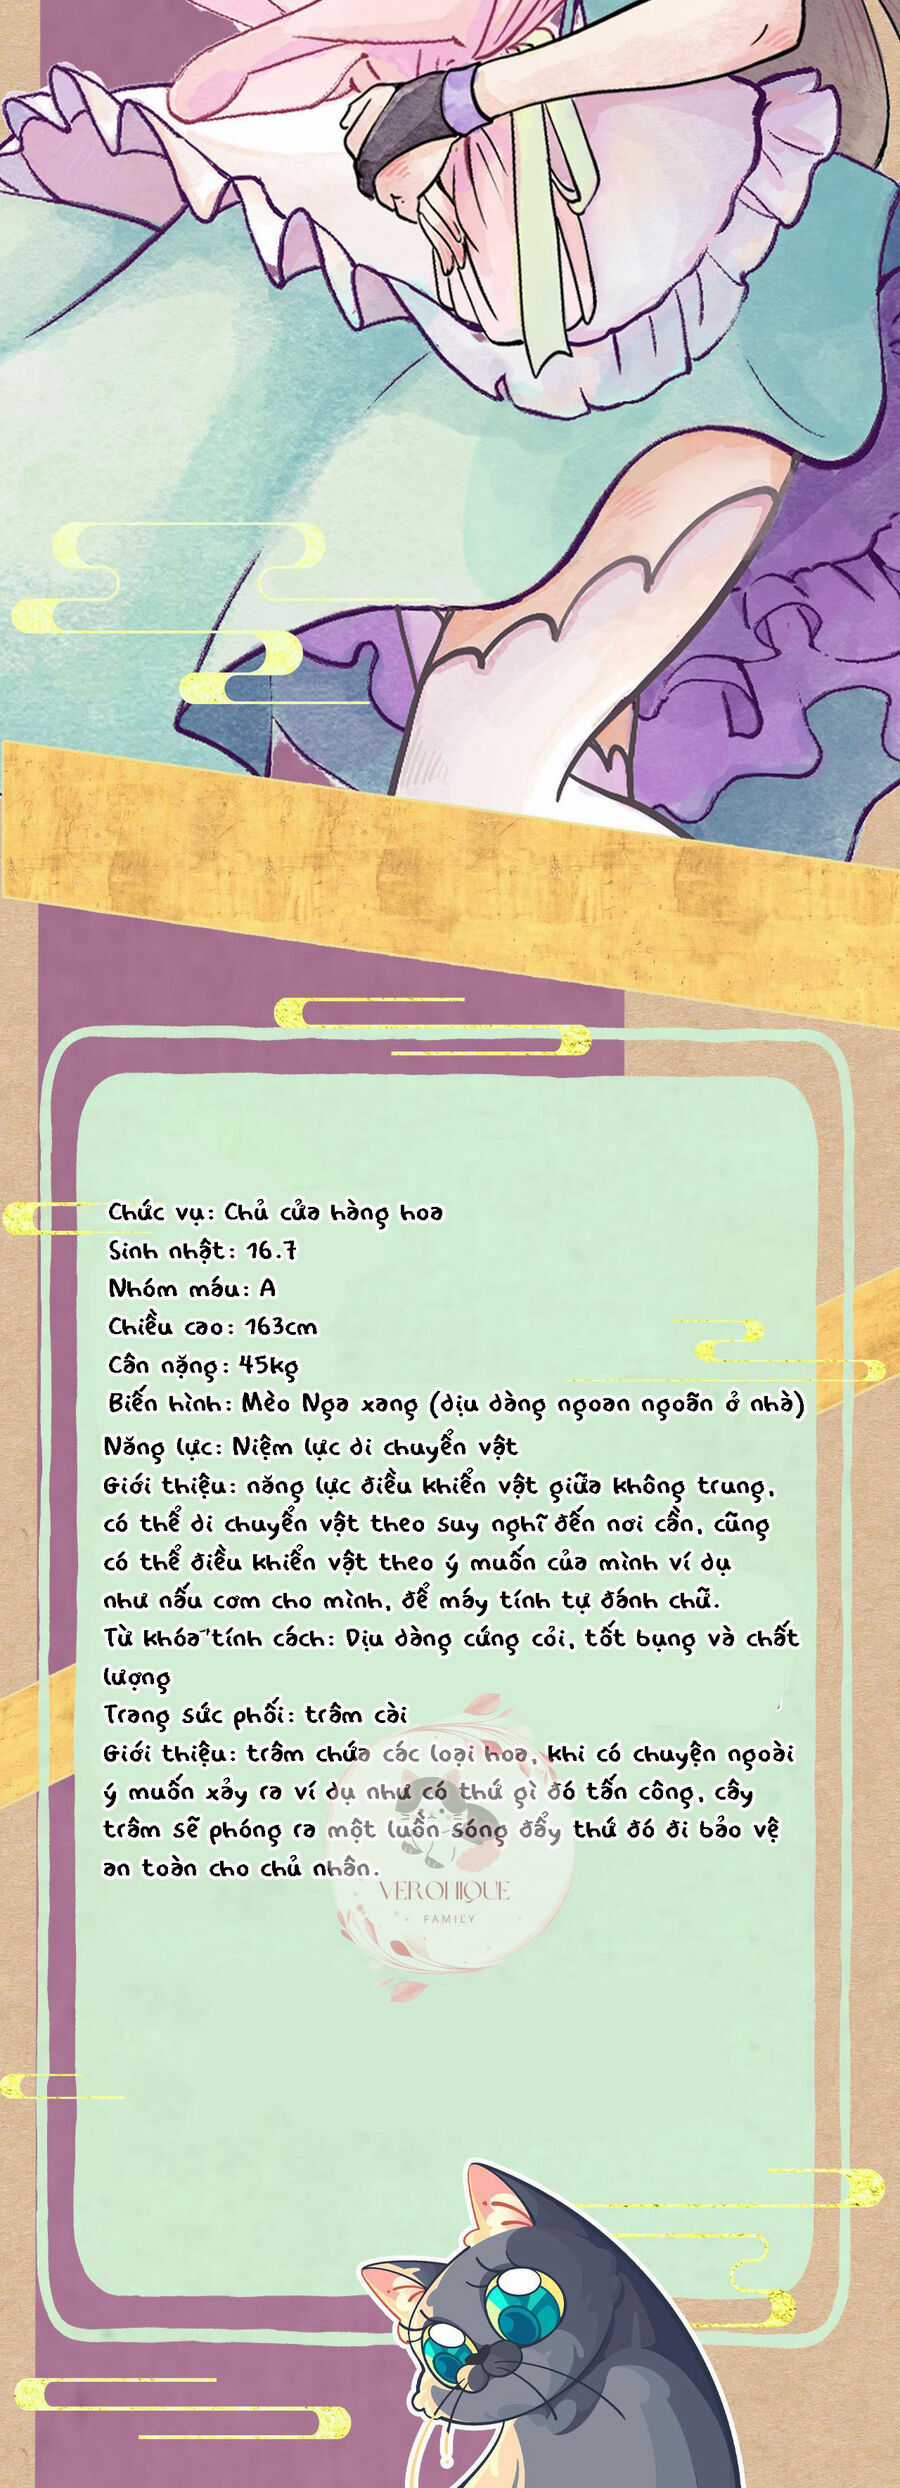 Chức vụ: Chủ cửa hàng hoa
Sinh nhật: 16.7
Nhóm máu: A
Chiều cao: 163cm
Cân nặng: 45kg
Biến hình: Mèo Nga xang (dịu dàng ngoan ngoãn ở nhà)
Năng lực: Niệm lực di chuyển vật
Giới thiệu: năng lực điều khiển vật giữa không trung,
có thể di chuyển vật theo suy nghĩ đến nơi cần, cũng
có thể điều khiển vật theo ý muốn của mình ví dụ
như nấu cơm cho mình, để máy tính tự đánh chữ.
Từ khóa tính cách: Dịu dàng cứng cỏi, tốt bụng và chất
lượng
Trang sức phối: trâm cài
Giới thiệu: trâm chứa các loại hoa, khi có chuyện ngoài
ý muốn xảy ra ví dụ như có thứ gì đó tấn công, cây
trâm sẽ phóng ra một luồn sóng đẩy thứ đó đi bảo vệ
an toàn cho chủ nhân.
VERONIQUE
FAMILY